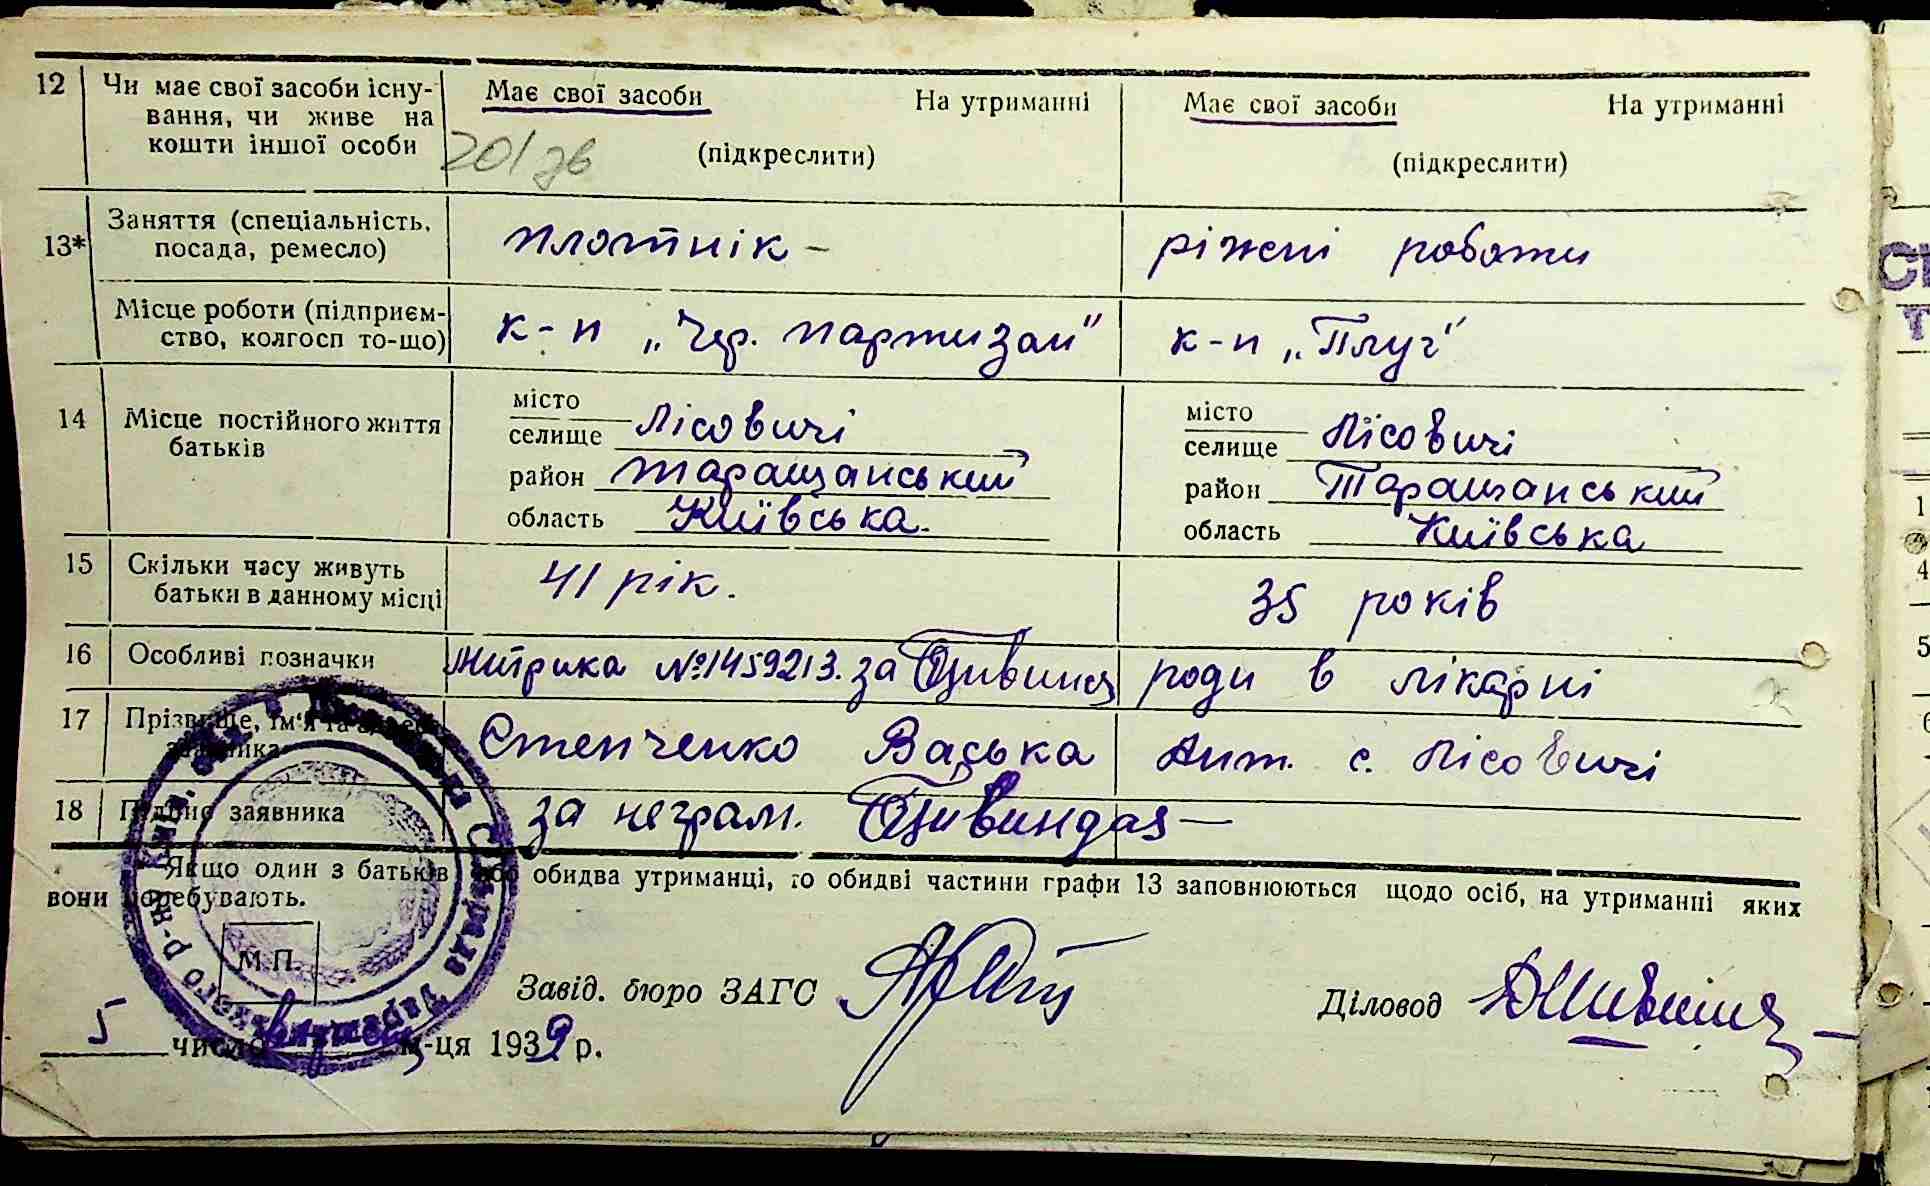 12 Чи має свої засоби існу- Має свої засоби На утриманні Має свої засоби На утриманні
вання, чи живе на
кошти іншої особи (підкреслити) (підкреслити)
201
13* Заняття (спеціальність, плотнік - ріжні роботи
посада, ремесло)
Місце роботи (підприєм- к-п „Чер. партизан" к-п „Плуг"
ство, колгосп то-що)
14 Місце постійного життя
батьків
місто місто
селище Лісовичі селище Лісовичі
район Таращанський район Таращанський
область Київська. область Київська
15 Скільки часу живуть 41 рік. 35 років
батьки в данному місці
16 Особливі позначки Митрика №1459213. за роди в лікарні
17 Прізвище, ім'я та Степченко Васька Ант. с. Лісовичі
заявника
18 Підпис заявника за неграм.
Якщо один з батьків або обидва утриманці, то обидві частини графи 13 заповнюються щодо осіб, на утриманні яких
вони перебувають.
М.П.
Завід. бюро ЗАГС Діловод
5 число м-ця 1939 р.